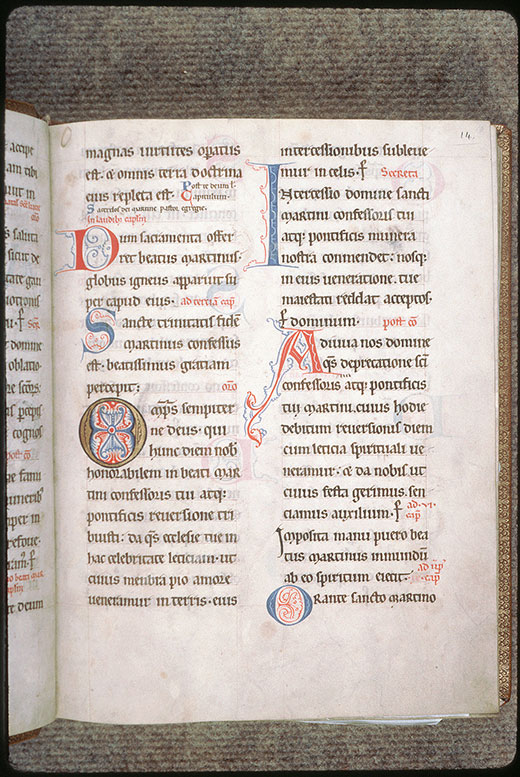 14.
magnas uirtutes operatus
est. & omnis terra doctrina
eius repleta est.
Post te deum l.
Capitulum
Sacerdos dei martine pastor egregie.
In laudibus capitulum
Dum sacramenta offer
ret beatus martinus.
globus igneus apparuit su
per capud eius. ad terciam cap.
Sancte trinitatis fidē
martinus confessus
est. beatissimus gratiam
percepit. oro
Omps sempiter
ne deus. qui
hunc diem nob
honorabilem in beati mar
tini confessoris tui atq;
pontificis reuersione tri
buisti. da qs ecclesie tue in
hac celebritate leticiam. ut
cuius menbra pio amore
ueneramur in terris. eius
intercessionibus subleue
mur in celis. P Secreta
Intercessio domine sancti
martini confessoris tui
atq; pontificis munera
nostra commendet. nosq;
in eius ueneratione. tue
maiestati reddat acceptos.
P dominum. post cō
Adiuua nos domine
qs deprecatione sci
confessoris atq; pontificis
tui martini. cuius hodie
debitum reuersionis diem
cum leticia spirituali ue
neramur. & da nobis ut
cuius festa gerimus. sen
ciamus auxilium. P ad .vi.
cap
Imposita manu puero bea
tus martinus inmundū
ab eo spiritum eiecit. ad
cap.
Orante sancto martino